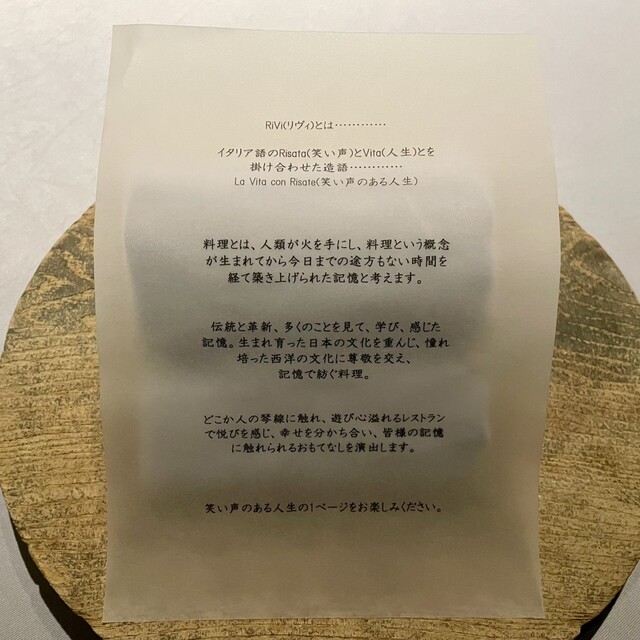 RiVi(リヴィ)とは…………
イタリア語のRisata(笑い声)とVita(人生)とを
掛け合わせた造語…………
La Vita con Risate(笑い声のある人生)
料理とは、人類が火を手にし、料理という概念
が生まれてから今日までの途方もない時間を
経て築き上げられた記憶と考えます。
伝統と革新、多くのことを見て、学び、感じた
記憶。生まれ育った日本の文化を重んじ、憧れ
培った西洋の文化に尊敬を交え、
記憶で紡ぐ料理。
どこか人の琴線に触れ、遊び心溢れるレストラン
で悦びを感じ、幸せを分かち合い、皆様の記憶
に触れられるおもてなしを演出します。
笑い声のある人生の1ページをお楽しみください。